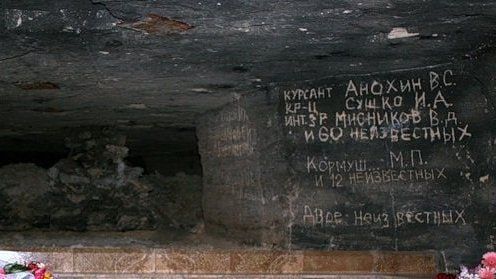 КУРСАНТ АНОХИН В.С.
КР-Ц СУШКО И.А.
ИНТ 3Р МИСНИКОВ В.Д.
И 60 НЕИЗВЕСТНЫХ
КОРМУШ М.П.
И 12 НЕИЗВЕСТНЫХ
ДВОЕ НЕИЗВЕСТНЫХ